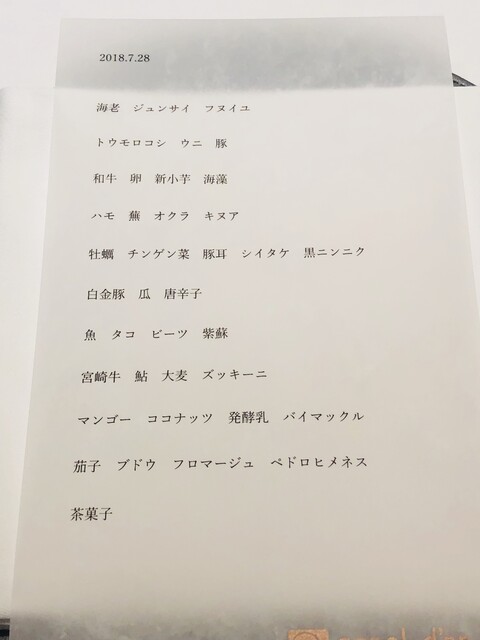 2018.7.28
海老　ジュンサイ　フヌイユ
トウモロコシ　ウニ　豚
和牛　卵　新小芋　海藻
ハモ　蕪　オクラ　キヌア
牡蠣　チンゲン菜　豚耳　シイタケ　黒ニンニク
白金豚　瓜　唐辛子
魚　タコ　ビーツ　紫蘇
宮崎牛　鮎　大麦　ズッキーニ
マンゴー　ココナッツ　発酵乳　バイマックル
茄子　ブドウ　フロマージュ　ペドロヒメネス
茶菓子